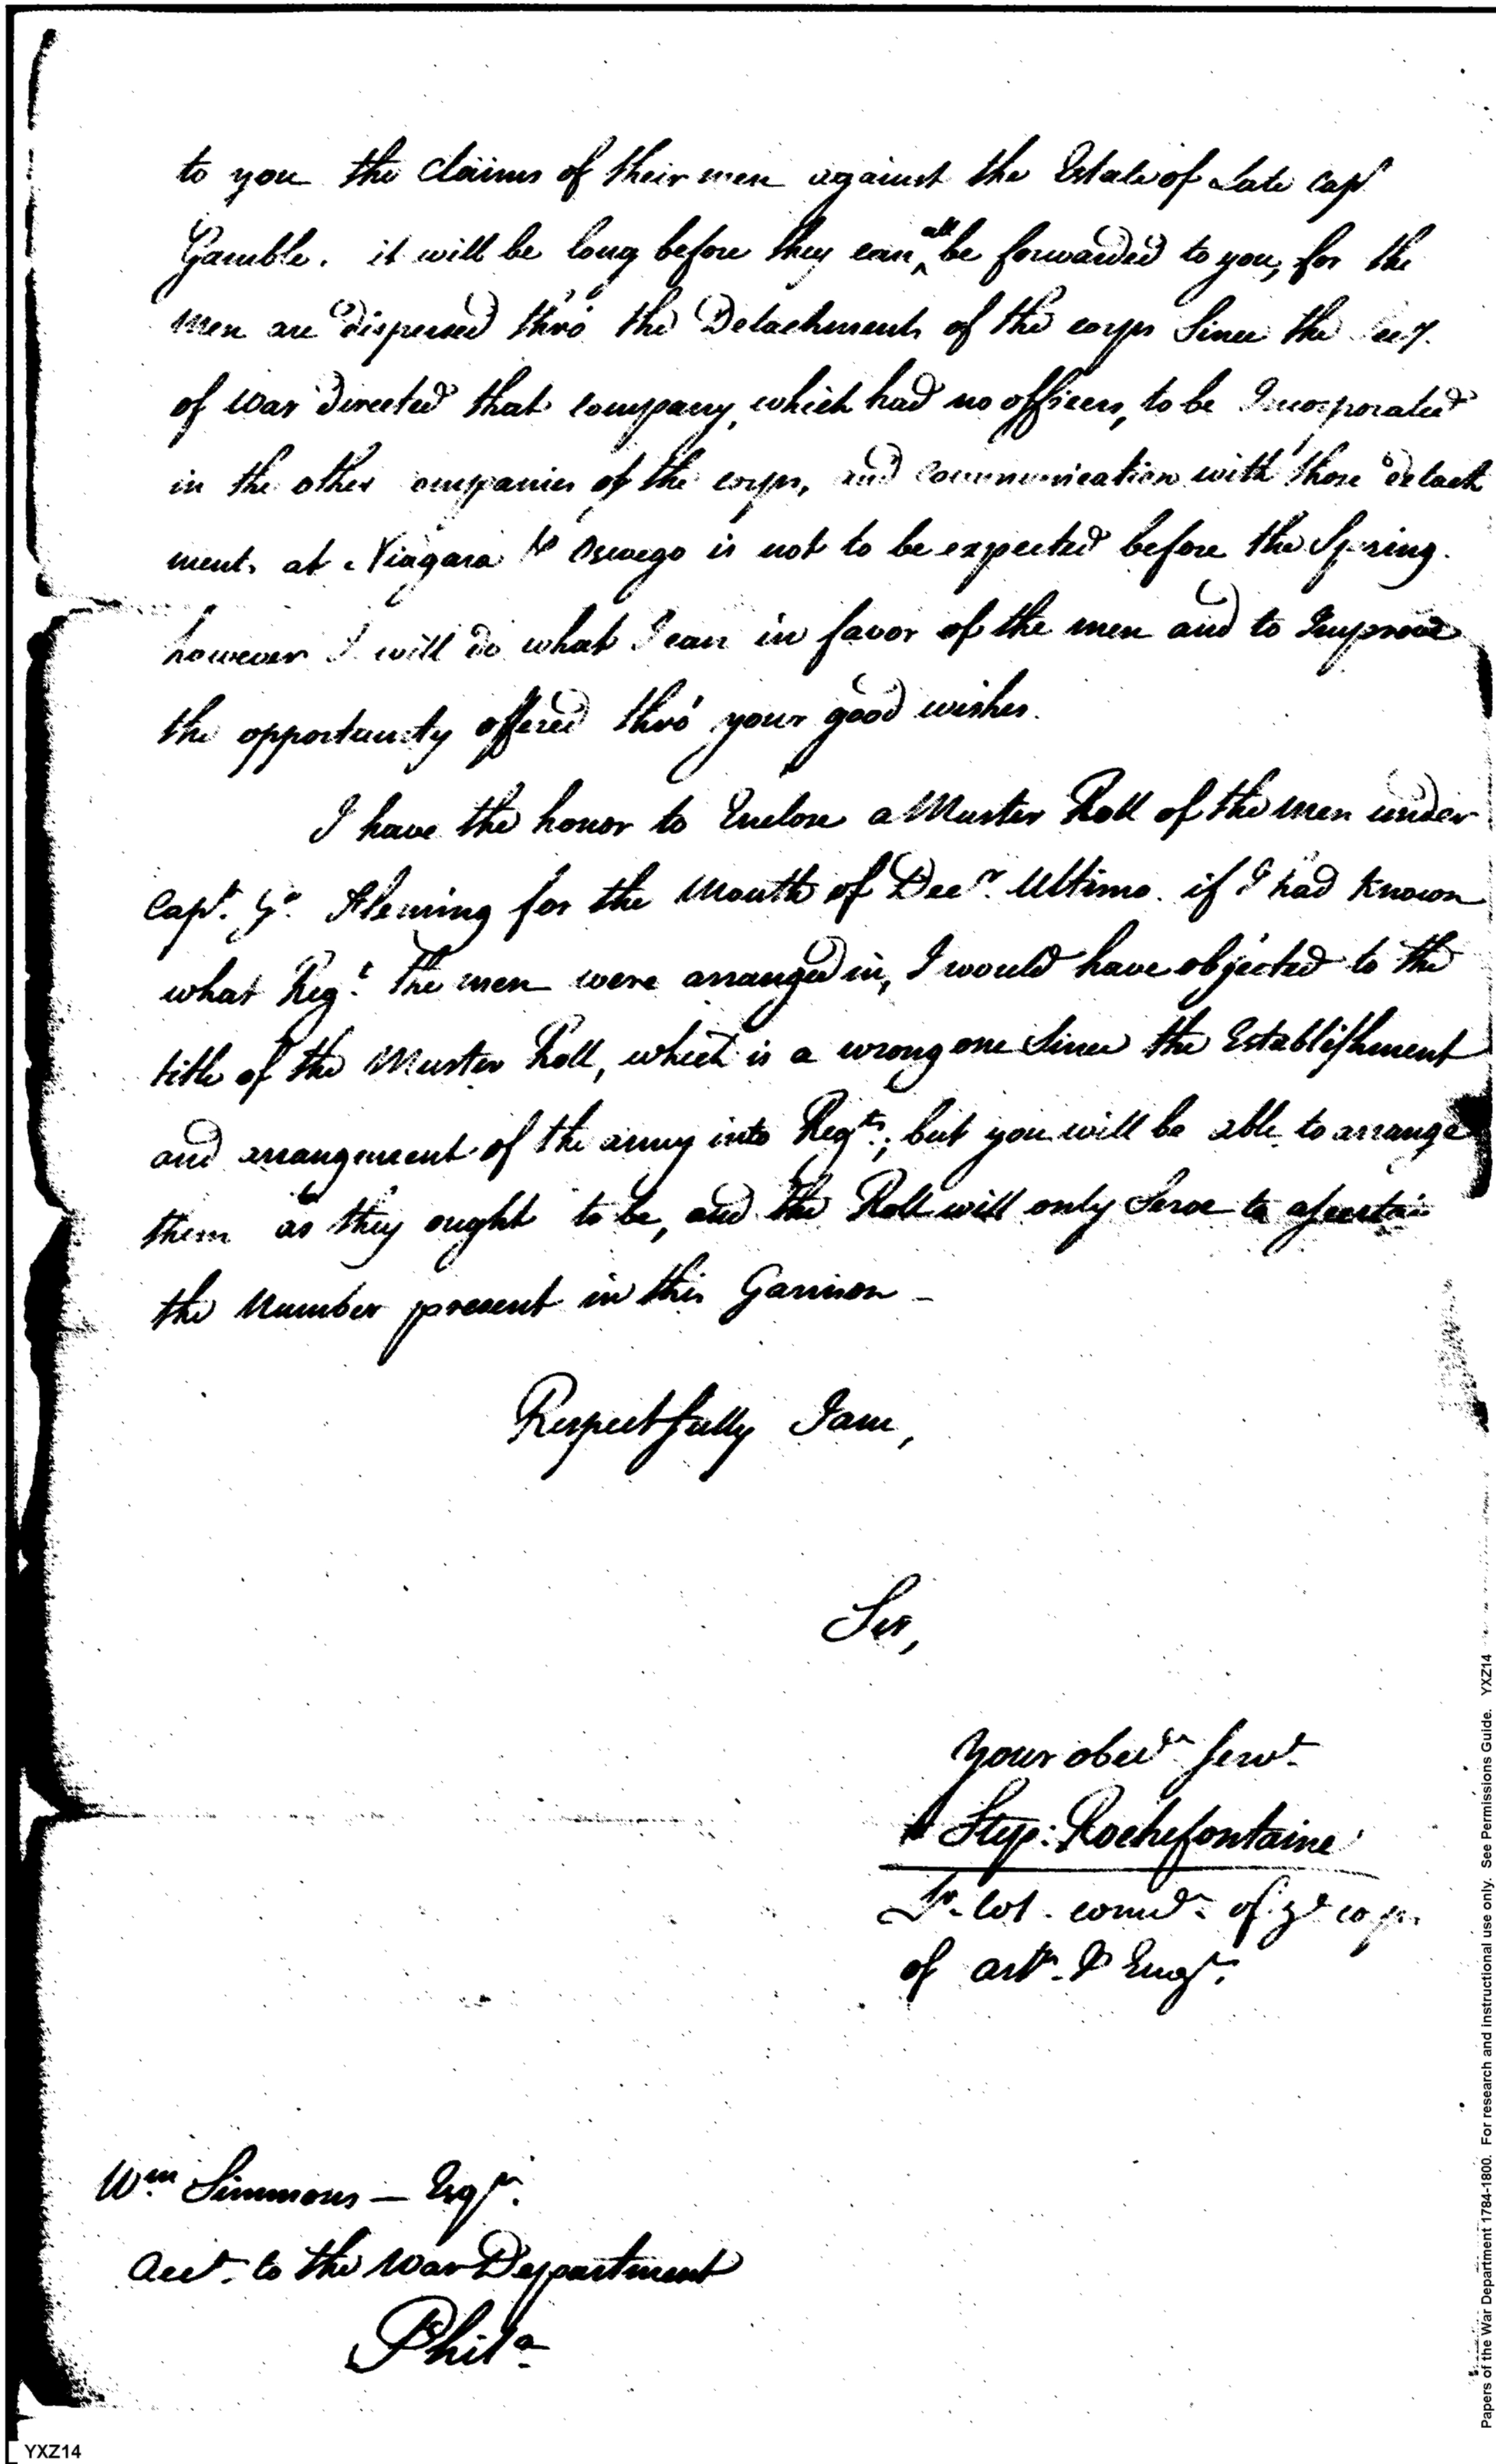 to you the claims of their men against the Estate of Late Capt
Gamble. it will be long before they can all be forwarded to you, for the
Men are dispersed thro' the Detachments of the corps Since the Secy.
of War directed that company, which had no officers, to be Incorporated
in the other companies of the corps, and communication with those detach
ments at Niagara & Oswego is not to be expected before the Spring.
however I will do what I can in favor of the men and to Improve
the opportunity offered thro' your good wishes.
I have the honor to Enclose a Muster Roll of the Men under
Capt. Go. Fleming for the Month of Decr. Ultimo. if I had known
what Regt. the men were arranged in, I would have objected to the
title of the Muster Roll, which is a wrong one Since the Establishment
and arrangement of the army into Regts.; but you will be able to arrange
them as they ought to be, and the Roll will only Serve to ascertain
the Number present in this Garrison _
Respectfully I am,
Sir,
Your obedt. Servt.
Step: Rochefontaine
Lt. Col. comdt. of ye corps
of artts. & Engrs.
Wm. Simmons — Esqr.
Acct. to the War Department
Phila.
Papers of the War Department 1784-1800. For research and instructional use only. See Permissions Guide. YXZ14
YXZ14